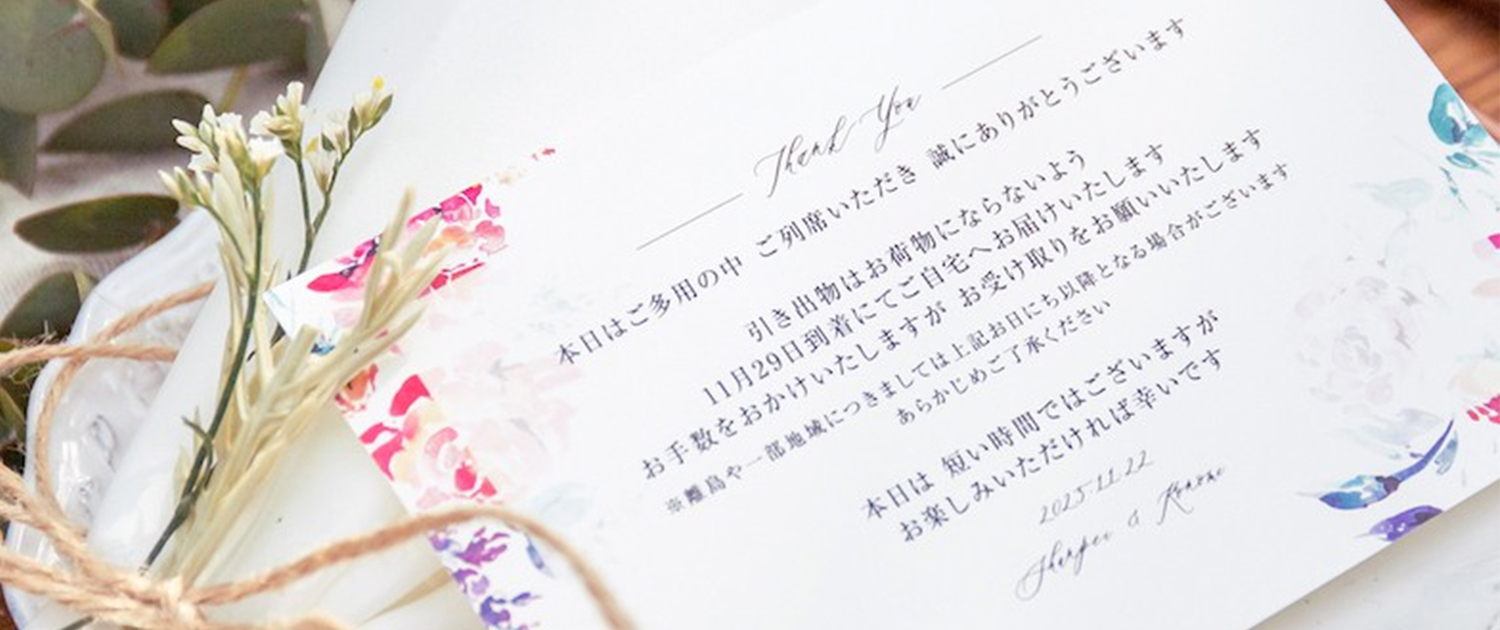 Thank You
本日はご多用の中 ご列席いただき 誠にありがとうございます
引き出物はお荷物にならないよう
11月29日到着にてご自宅へお届けいたします
お手数をおかけいたしますが お受け取りをお願いいたします
※離島や一部地域につきましては上記お日にち以降となる場合がございます
あらかじめご了承ください
本日は 短い時間ではございますが
お楽しみいただければ幸いです
2025.11.22
&